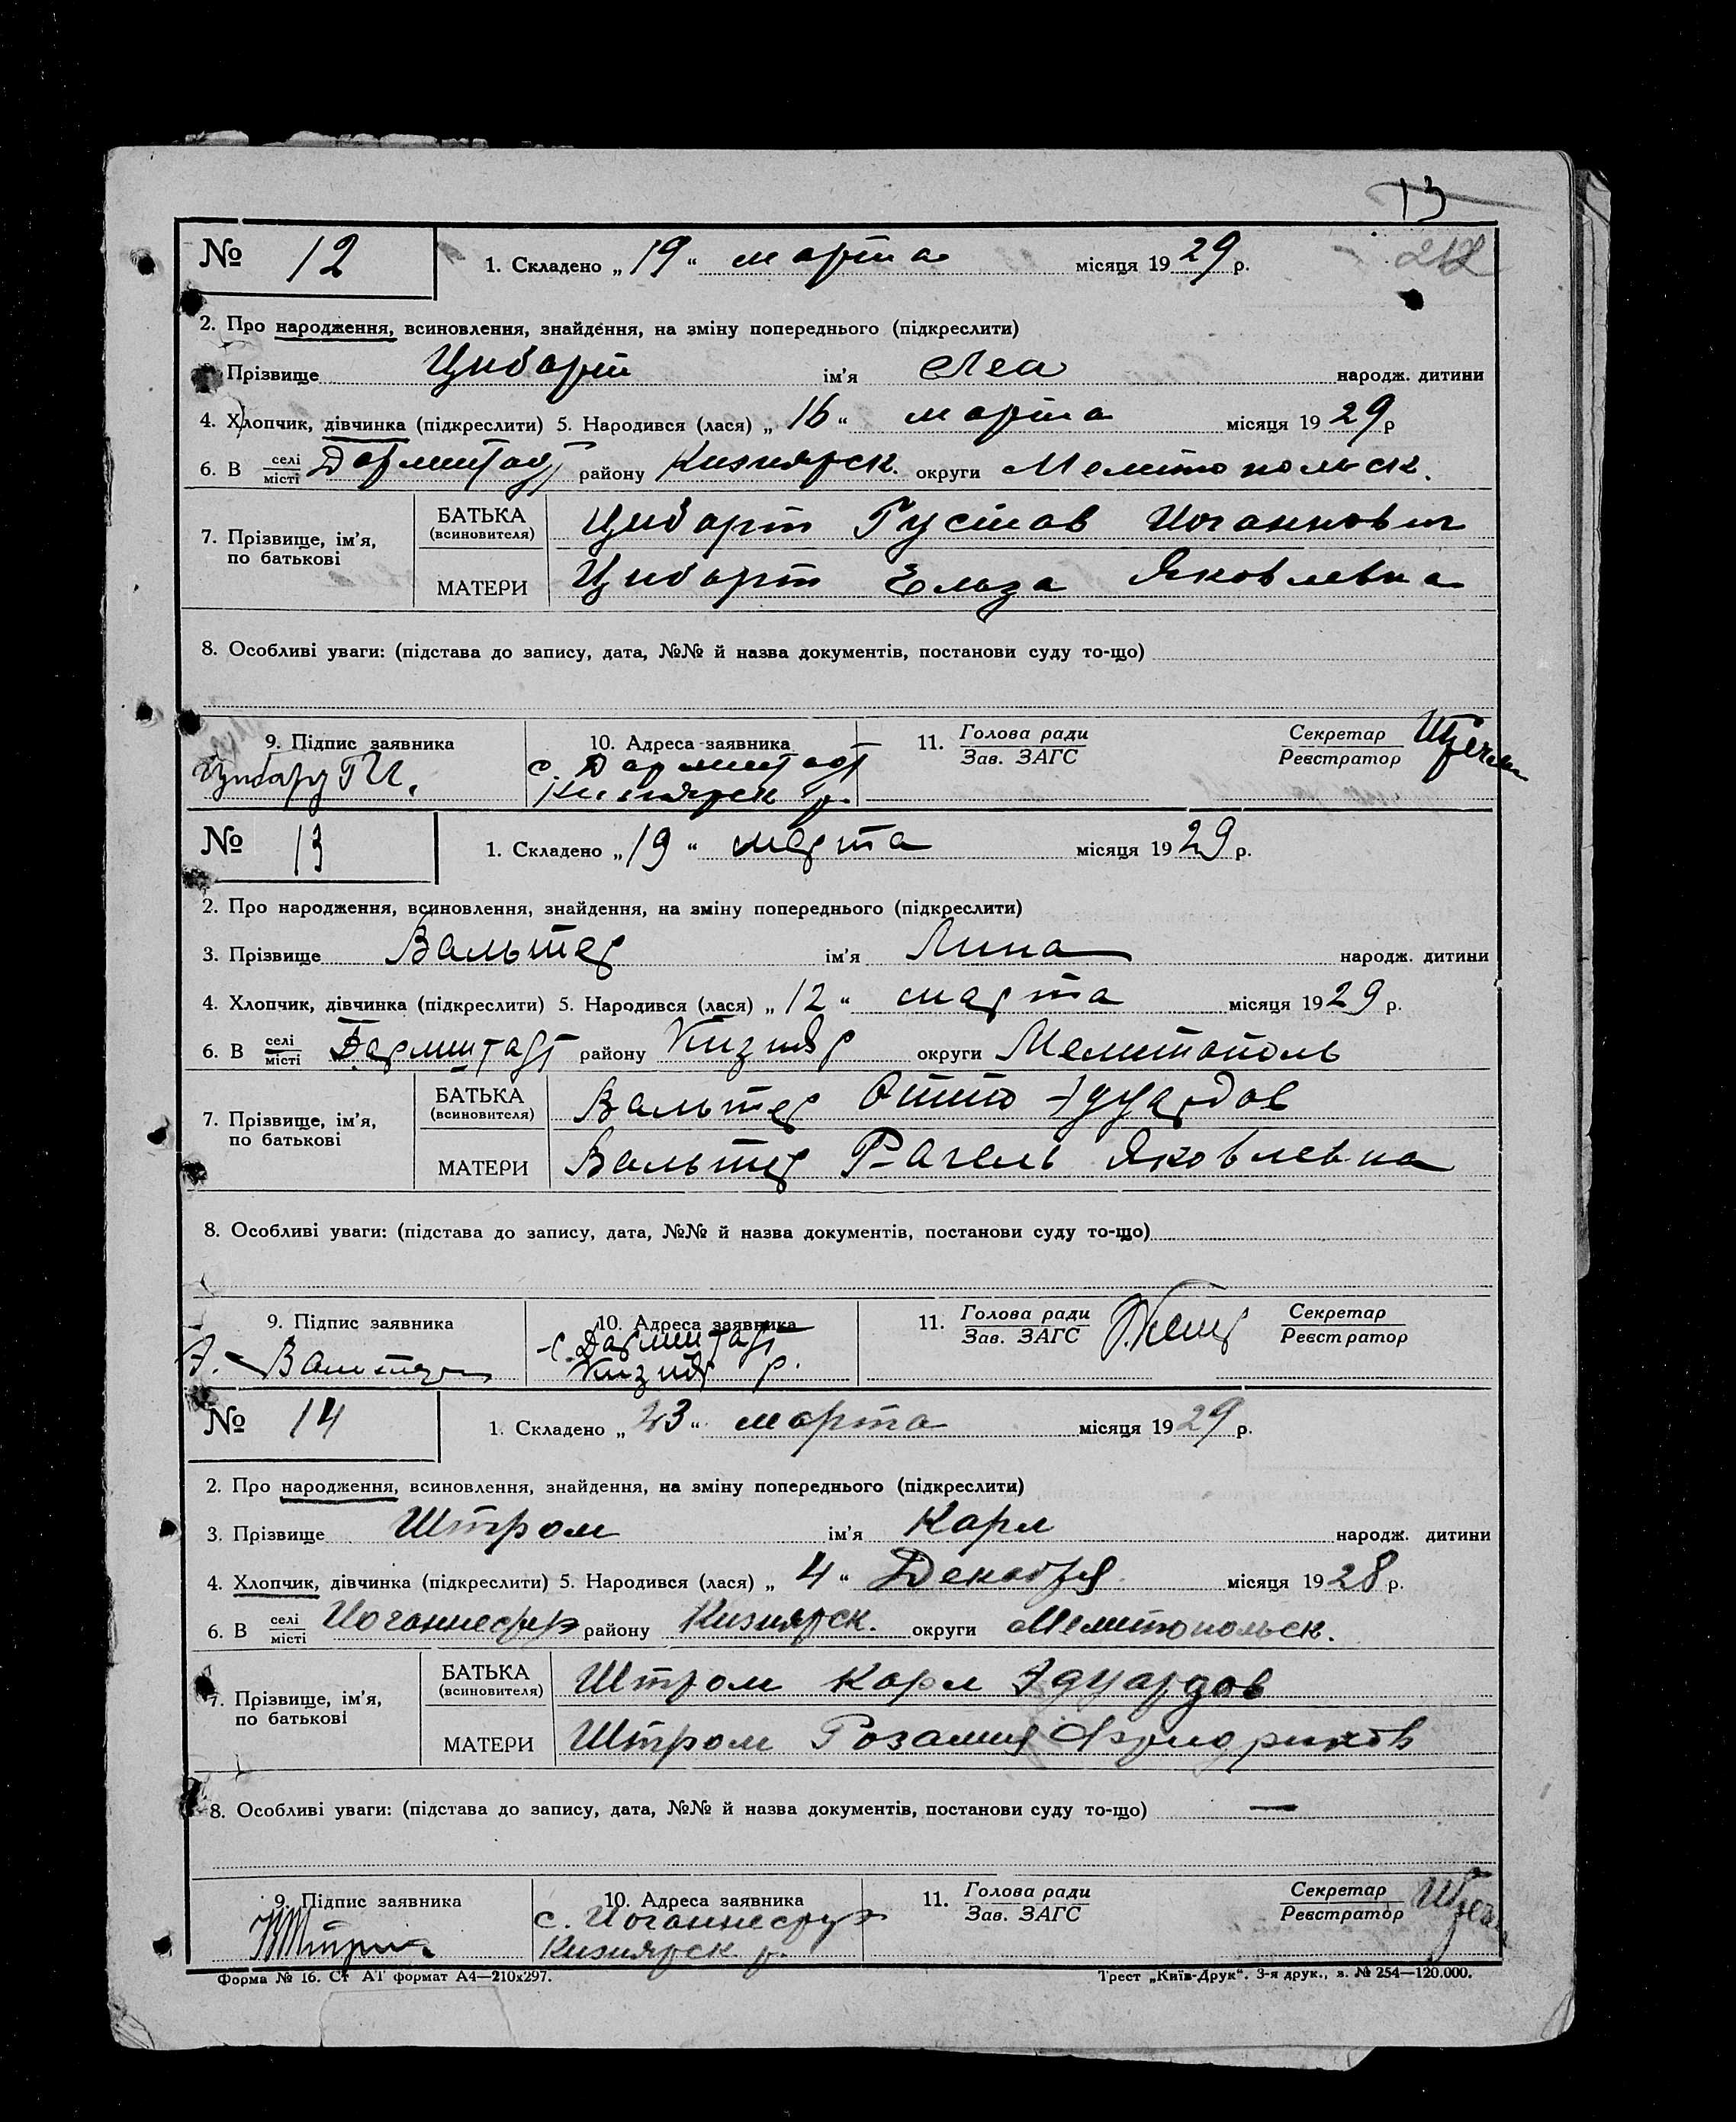 13
212
№ 12 1. Складено „19“ марта місяця 1929 р.
2. Про народження, всиновлення, знайдення, на зміну попереднього (підкреслити)
Прізвище Цибарт ім'я Леа народж. дитини
4. Хлопчик, дівчинка (підкреслити) 5. Народився (лася) „16“ марта місяця 1929 р
6. В селі місті Дармштадт району Кизиярск. округи Мелитопольск.
7. Прізвище, ім'я, по батькові БАТЬКА (всиновителя) Цибарт Густав Иоганнович
МАТЕРИ Цибарт Ельза Яковлевна
8. Особливі уваги: (підстава до запису, дата, №№ й назва документів, постанови суду то-що)
9. Підпис заявника 10. Адреса заявника 11. Голова ради Зав. ЗАГС Секретар Реєстратор
с. Дармштадт
Кизиярск р.
№ 13 1. Складено „19“ марта місяця 1929 р.
2. Про народження, всиновлення, знайдення, на зміну попереднього (підкреслити)
3. Прізвище Вальтер ім'я Лина народж. дитини
4. Хлопчик, дівчинка (підкреслити) 5. Народився (лася) „12“ марта місяця 1929 р.
6. В селі місті Дармштадт району Кизияр округи Мелитополь
7. Прізвище, ім'я, по батькові БАТЬКА (всиновителя) Вальтер Отто Эдуардов
МАТЕРИ Вальтер Рагель Яковлевна
8. Особливі уваги: (підстава до запису, дата, №№ й назва документів, постанови суду то-що)
9. Підпис заявника 10. Адреса заявника 11. Голова ради Зав. ЗАГС Секретар Реєстратор
с. Дармштадт
Кизияр р.
№ 14 1. Складено „23“ марта місяця 1929 р.
2. Про народження, всиновлення, знайдення, на зміну попереднього (підкреслити)
3. Прізвище Штром ім'я Карл народж. дитини
4. Хлопчик, дівчинка (підкреслити) 5. Народився (лася) „4“ Декабря місяця 1928 р.
6. В селі місті Иоганнесруэ району Кизиярск. округи Мелитопольск.
7. Прізвище, ім'я, по батькові БАТЬКА (всиновителя) Штром Карл Эдуардов
МАТЕРИ Штром Розалия Фридрихов
8. Особливі уваги: (підстава до запису, дата, №№ й назва документів, постанови суду то-що) —
9. Підпис заявника 10. Адреса заявника 11. Голова ради Зав. ЗАГС Секретар Реєстратор
с. Иоганнесруэ
Кизиярск р.
Форма № 16. Ст АТ формат А4—210х297. Трест „Київ-Друк“. 3-я друк., з. № 254—120.000.